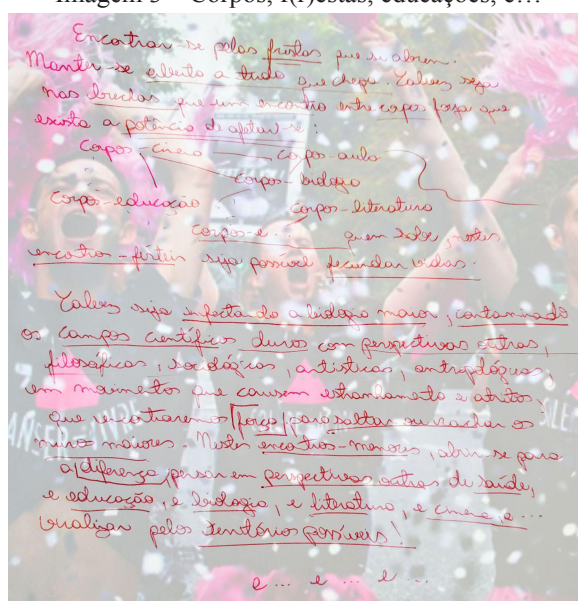 Imagem 3 – Corpos, f(r)estas, educações, e...
Encontrar-se pelas frestas que se abrem.
Manter-se aberto a tudo que chega. Talvez seja
nas brechas que um encontro entre corpos faça que
exista a potência de afetar-se:
Corpos-cinema corpos-aula
corpos-biologia
Corpos-educação corpos-literatura
corpos-e... quem sabe, nestes
encontros-férteis seja possível fecundar vidas.
Talvez seja infectando a biologia maior, contaminando
os campos científicos duros com perspectivas outras,
filosóficas, sociológicas, artísticas, antropológicas,
em movimentos que causem estranhamento e atritos,
que encontraremos força para saltar ou rachar os
muros maiores. Nestes encontros-menores, abrir-se para
a diferença, pensar em perspectivas outras de saúde,
e educação, e biologia, e literatura, e cinema, e...
viralizar pelos territórios possíveis!
e... e... e...